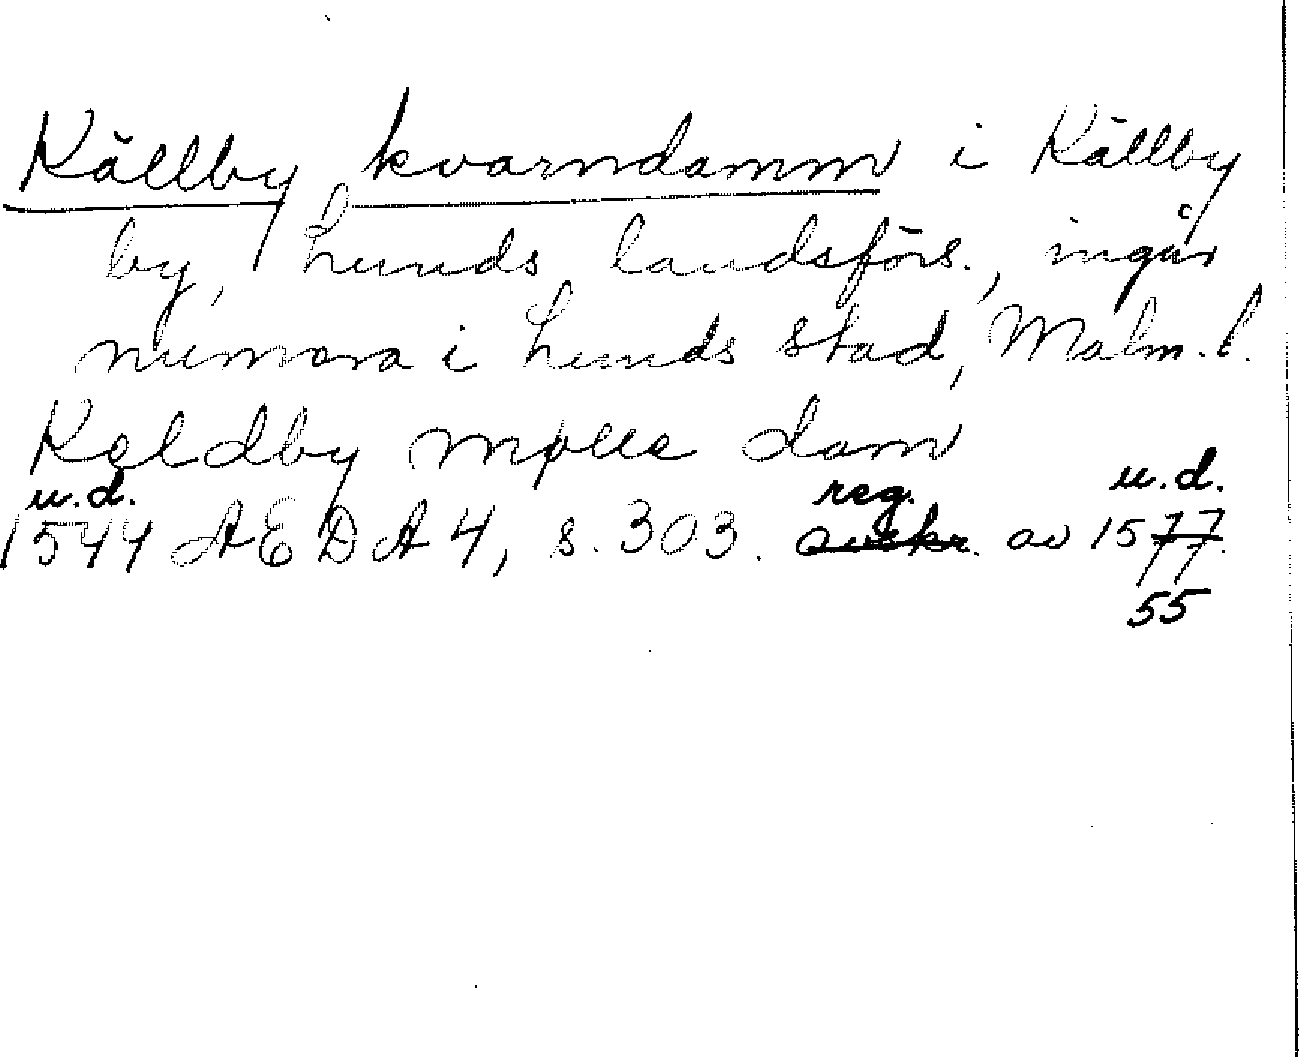 Källby kvarndamm i Källby
by, Lunds landsförs., ingår
numera i Lunds stad, Malm. l.
Keldby mølle dam
u.d. reg. u.d.
1544 AEDA 4, s. 303. avskr. av 1577.
55